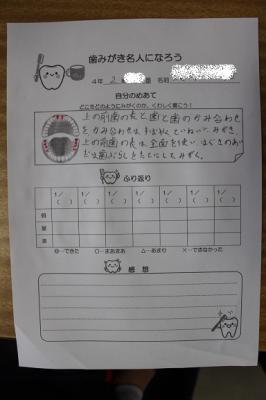 歯みがき名人になろう
4年 2 名前
自分のめあて
どこをどのようにみがくのか、くわしく書こう！
上の前歯の表と歯と歯のかみ合わせ
をかみ合わせは、すばやくていねいに、みがき、
上の前歯の表は、全面を使い、はぐきのあい
だは歯ブラシをたてにしてみがく。
ふり返り
1/ 1/ 1/ 1/ 1/ 1/
( ) ( ) ( ) ( ) ( ) ( )
朝
昼
夜
◎…できた ○…まあまあ △…あまり ×…できなかった
感想